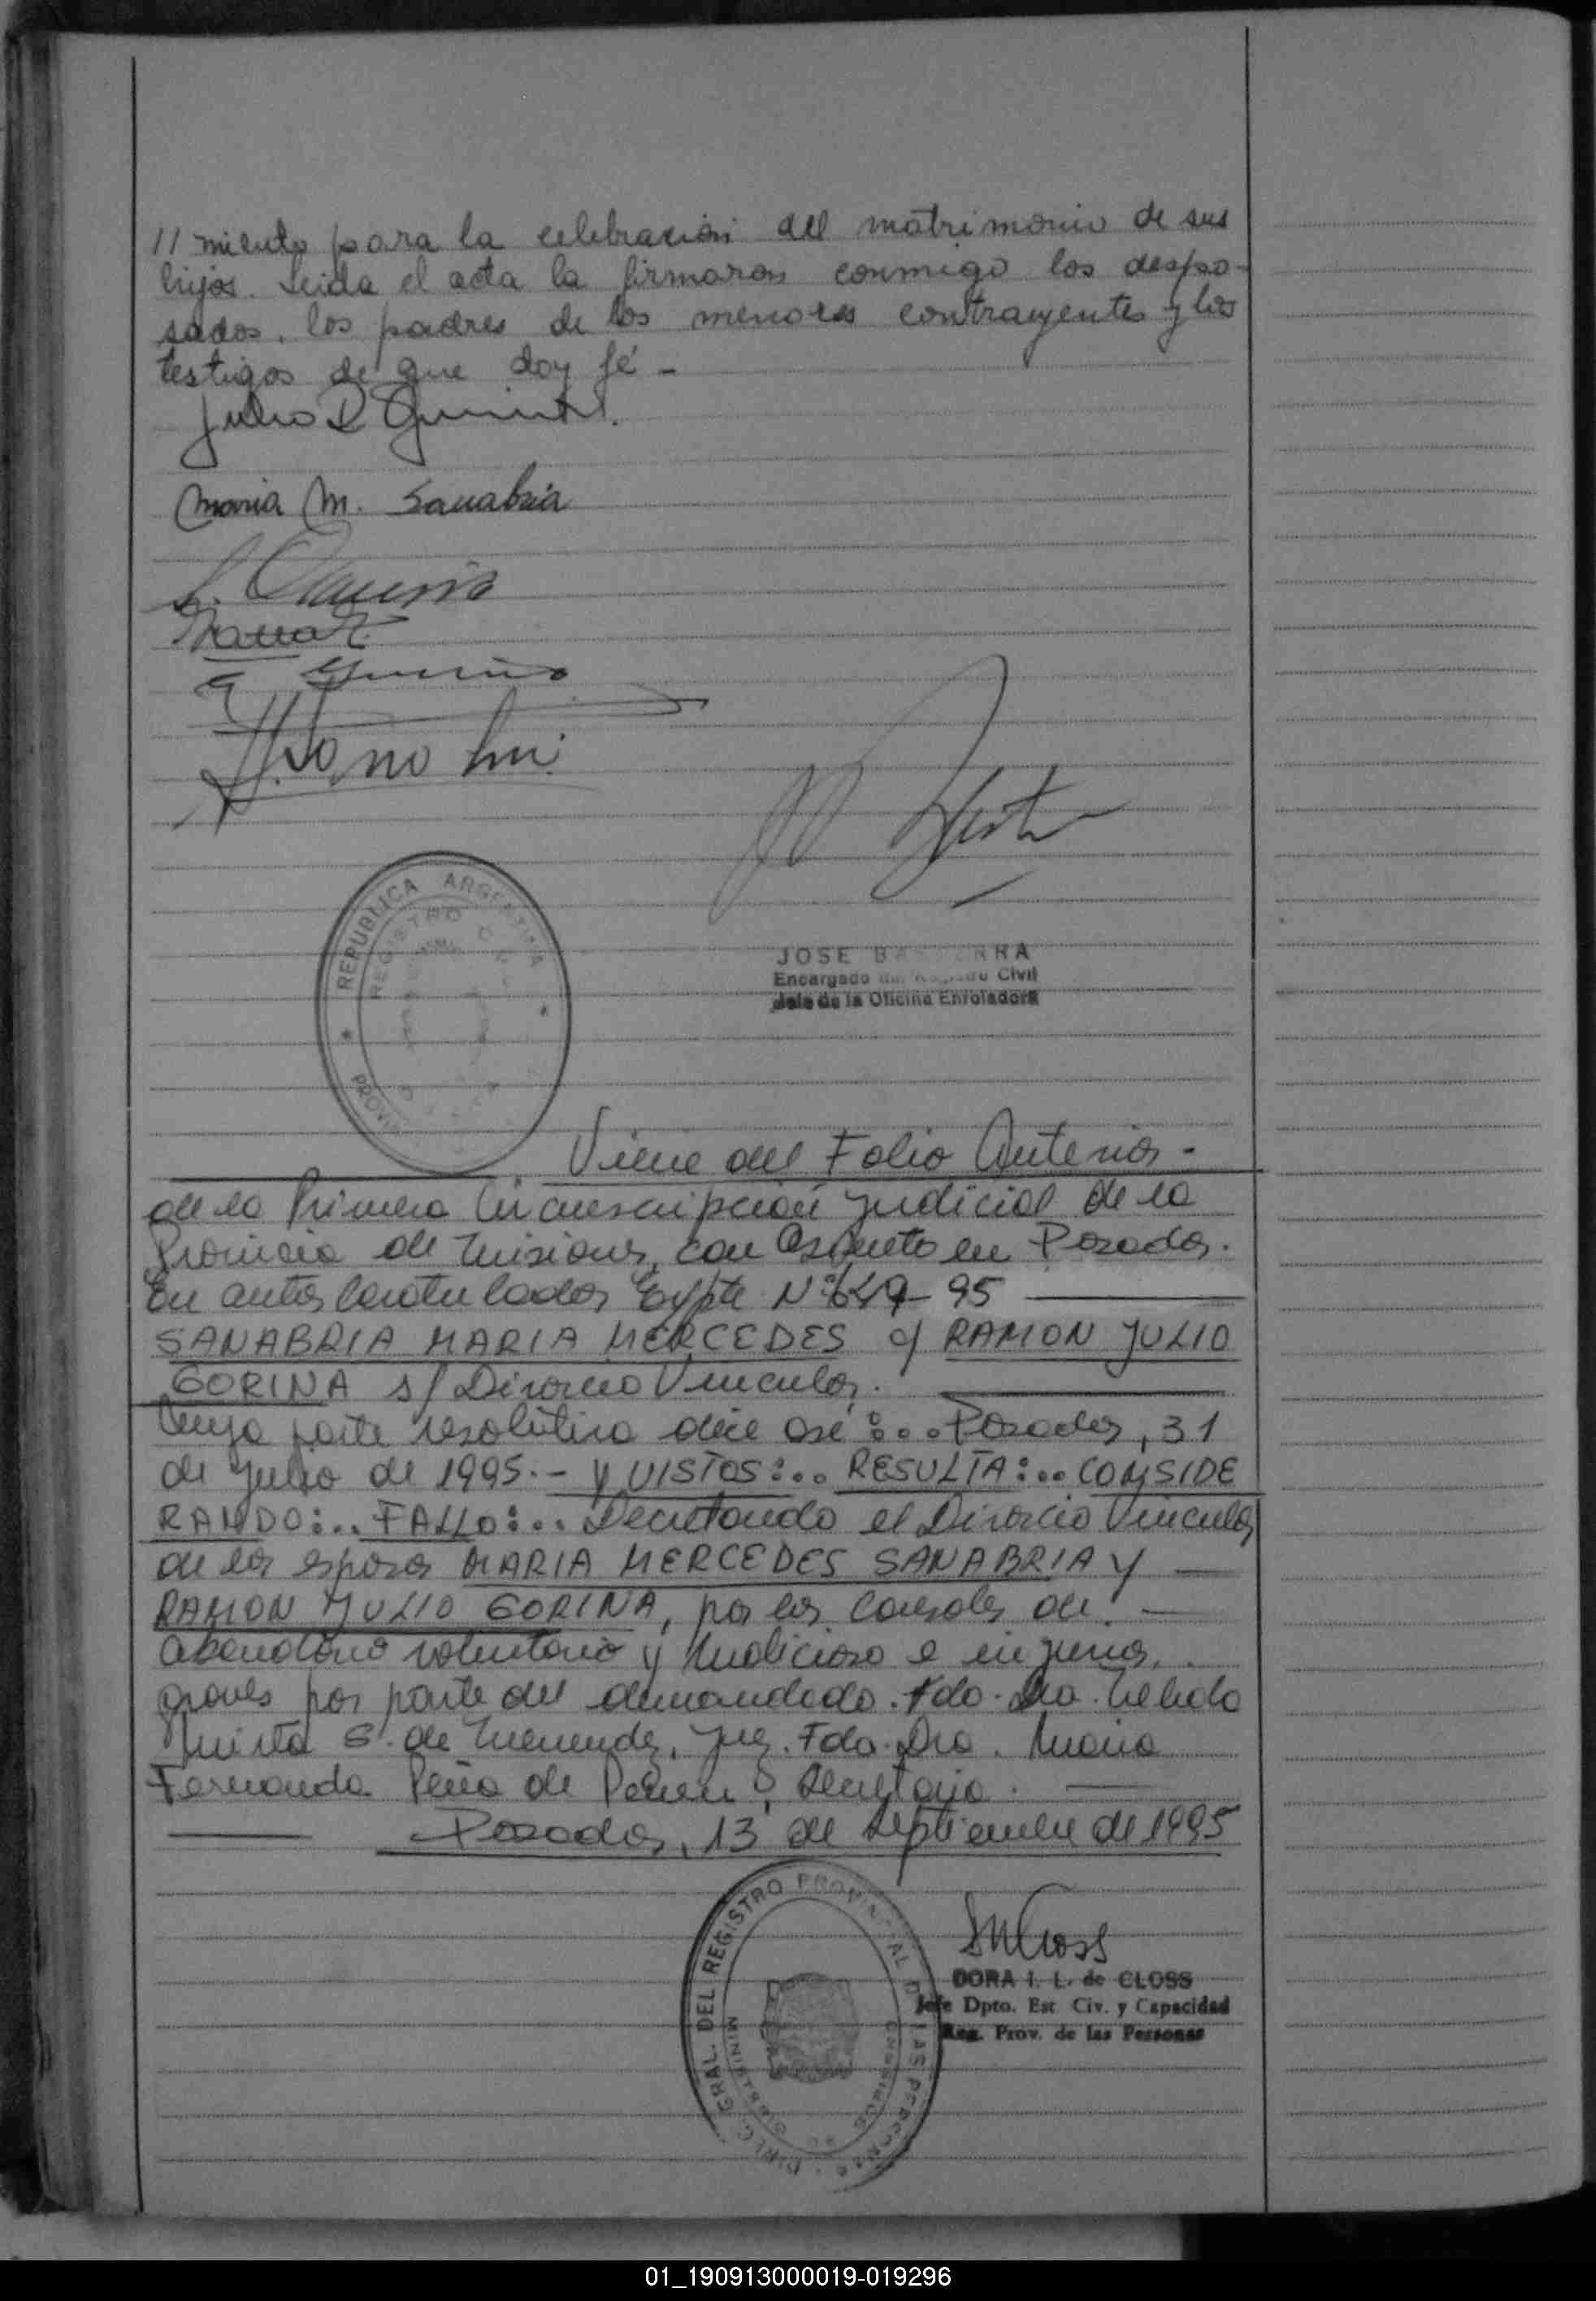 // miento para la celebración del matrimonio de sus
hijos. Leida el acta la firmaron conmigo los despo-
sados, los padres de los menores contrayentes y los
testigos de que doy fé -
Julio R
Maria M. Sanabria
REPUBLICA ARGENTINA
REGISTRO
JOSE
Encargado Civil
Jefe de la Oficina Enroladora
Viene del Folio Anterior -
de la Primera Circunscripción Judicial de la
Provincia de Misiones, con asiento en Posadas.
En autos Caratulados Expte Nº 95
SANABRIA MARIA MERCEDES c/ RAMON JULIO
GORINA s/ Divorcio Vincular.
Cuya parte resolutiva dice así:... Posadas, 31
de Julio de 1995.- Y VISTOS:.. RESULTA:.. CONSIDE
RANDO:.. FALLO:.. Decretando el Divorcio Vincular
de los esposos MARIA MERCEDES SANABRIA Y
RAMON JULIO GORINA, por las Causales de
abandono voluntario y malicioso e injurias
graves por parte del demandado. Fdo. Dra.
Mirta G. de Menendez, Juez. Fdo. Dra. Maria
Fernanda Peña de , Secretaria.
Posadas, 13 de Septiembre de 1995
DIREC. GRAL. DEL REGISTRO PROVINCIAL DE LAS PERSONAS
MINISTERIO
DORA I. L. de CLOSS
Jefe Dpto. Est. Civ. y Capacidad
Reg. Prov. de las Personas
01_190913000019-019296